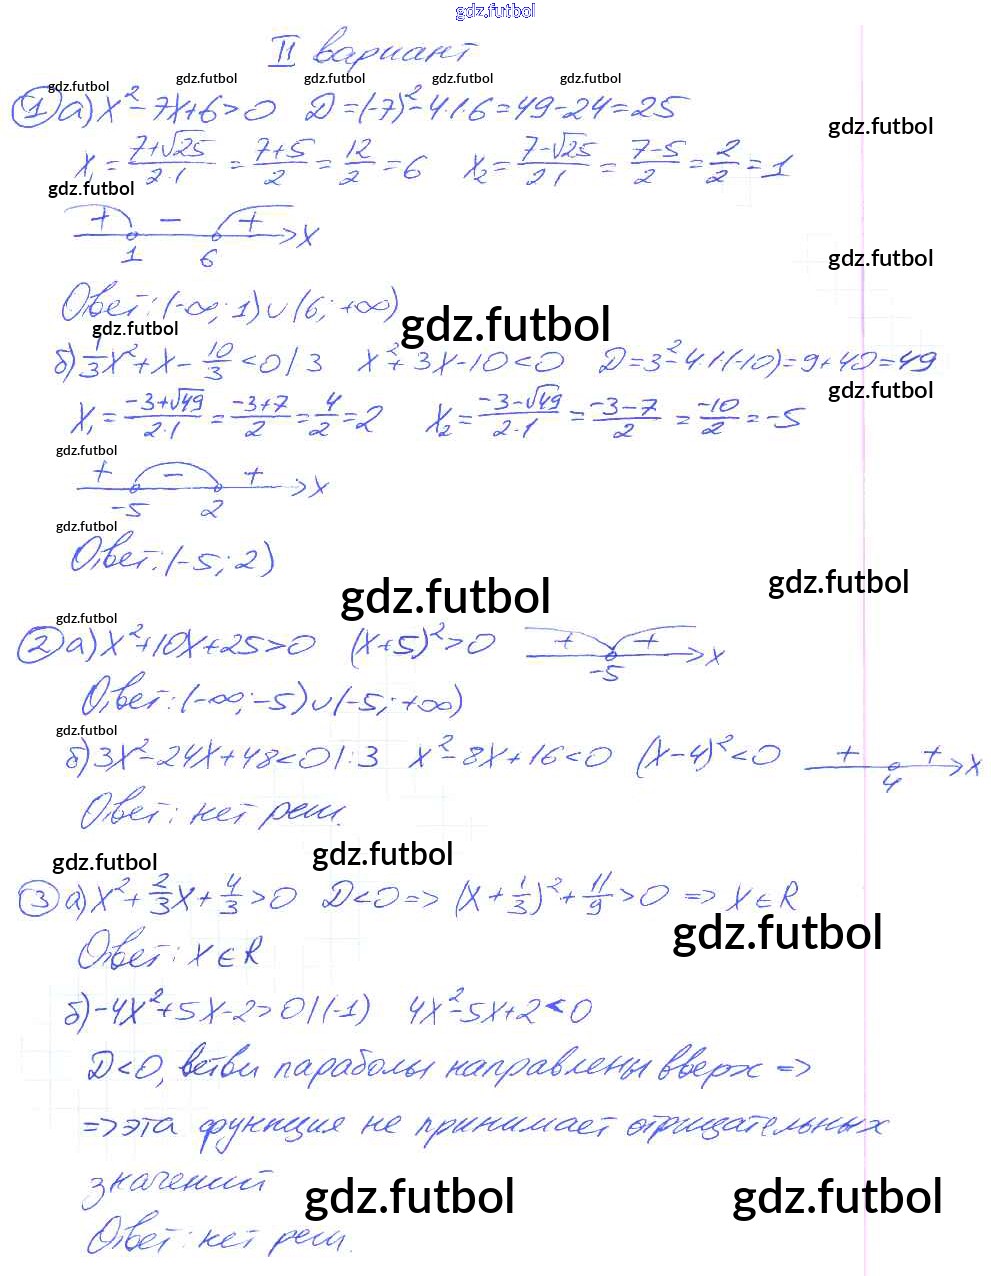 gdz.futbol
II вариант
gdz.futbol gdz.futbol gdz.futbol gdz.futbol gdz.futbol
① а) x² - 7x + 6 > 0 D = (-7)² - 4·1·6 = 49 - 24 = 25
gdz.futbol
x₁ = (7+√25)/(2·1) = (7+5)/2 = 12/2 = 6 x₂ = (7-√25)/(2·1) = (7-5)/2 = 2/2 = 1
gdz.futbol
+ - + x
1 6
gdz.futbol
Ответ: (-∞; 1) ∪ (6; +∞)
gdz.futbol gdz.futbol
б) 1/3x² + x - 10/3 < 0 | 3 x² + 3x - 10 < 0 D = 3² - 4·1·(-10) = 9 + 40 = 49
gdz.futbol
x₁ = (-3+√49)/(2·1) = (-3+7)/2 = 4/2 = 2 x₂ = (-3-√49)/(2·1) = (-3-7)/2 = -10/2 = -5
gdz.futbol
+ - + x
-5 2
gdz.futbol
Ответ: (-5; 2)
gdz.futbol gdz.futbol
gdz.futbol
② а) x² + 10x + 25 > 0 (x+5)² > 0 + + x
-5
Ответ: (-∞; -5) ∪ (-5; +∞)
gdz.futbol
б) 3x² - 24x + 48 < 0 | : 3 x² - 8x + 16 < 0 (x-4)² < 0 + + x
4
Ответ: нет реш.
gdz.futbol gdz.futbol
③ а) x² + 2/3x + 4/3 > 0 D < 0 => (x + 1/3)² + 11/9 > 0 => x ∈ R
gdz.futbol
Ответ: x ∈ R
б) -4x² + 5x - 2 > 0 | (-1) 4x² - 5x + 2 < 0
D < 0, ветви параболы направлены вверх =>
=> эта функция не принимает отрицательных
значений
gdz.futbol gdz.futbol
Ответ: нет реш.